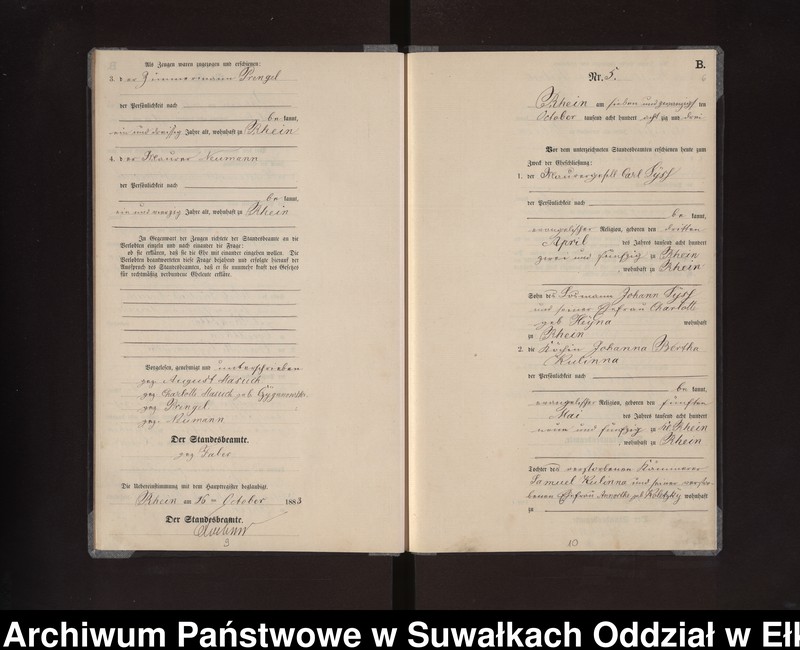 Als Zeugen waren zugezogen und erschienen:
3. der Zimmermann Prengel
der Persönlichkeit nach
be kannt,
ein und dreißig Jahre alt, wohnhaft zu Rhein
4. der Maurer Neumann
der Persönlichkeit nach
be kannt,
ein und vierzig Jahre alt, wohnhaft zu Rhein
In Gegenwart der Zeugen richtete der Standesbeamte an die
Verlobten einzeln und nach einander die Frage:
ob sie erklären, daß sie die Ehe mit einander eingehen wollen. Die
Verlobten beantworteten diese Frage bejahend und erfolgte hierauf der
Ausspruch des Standesbeamten, daß er sie nunmehr kraft des Gesetzes
für rechtmäßig verbundene Eheleute erkläre.
Vorgelesen, genehmigt und unterschrieben
gez. August Masuch
gez. Charlotte Masuch geb.
gez. Prengel
gez. Neumann
Der Standesbeamte.
gez.
Die Uebereinstimmung mit dem Hauptregister beglaubigt.
Rhein am 16ten October 1883
Der Standesbeamte.
3
B.
Nr. 5.
6
Rhein am sieben und zwanzigsten
October tausend acht hundert acht zig und drei
Vor dem unterzeichneten Standesbeamten erschienen heute zum
Zweck der Eheschließung:
1. der Maurergesell Carl
der Persönlichkeit nach
be kannt,
evangelischer Religion, geboren den dritten
April des Jahres tausend acht hundert
zwei und fünfzig zu Rhein
, wohnhaft zu Rhein
Sohn des Losmann Johann
und seiner Ehefrau Charlotte
geb. wohnhaft
zu Rhein
2. die Köchin Johanna Bertha
Kulinna
der Persönlichkeit nach
be kannt,
evangelischer Religion, geboren den fünften
Mai des Jahres tausend acht hundert
neun und fünfzig zu Rhein
, wohnhaft zu Rhein
Tochter des verstorbenen Kämmerer
Samuel Kulinna und seiner verstor-
benen Ehefrau geb. wohnhaft
zu
10
Archiwum Państwowe w Suwałkach Oddział w Ełk